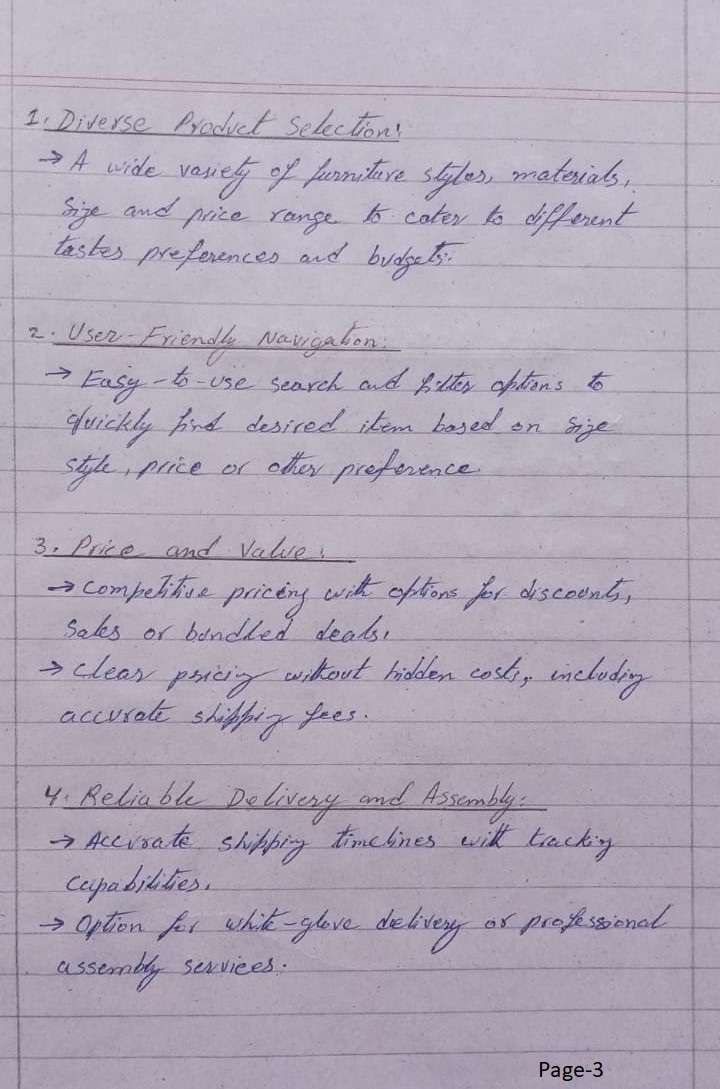 1. Diverse Product Selection:
→ A wide variety of furniture styles, materials,
Size and price range to cater to different
tastes preferences and budgets.
2. User-Friendly Navigation:
→ Easy-to-use search and filter options to
quickly find desired item based on size
style, price or other preference
3. Price and Value:
→ Competitive pricing with options for discounts,
Sales or bundled deals.
→ Clear pricing without hidden costs, including
accurate shipping fees.
4. Reliable Delivery and Assembly:
→ Accurate shipping timelines with tracking
capabilities.
→ Option for white-glove delivery or professional
assembly services.
Page-3